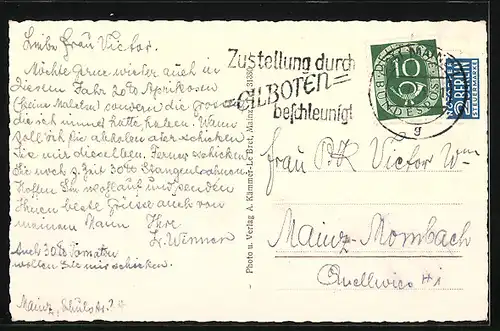 Liebe Frau Victor.
Möchte gerne wieder auch in
diesem Jahr 20 Pf Aprikosen
(keine Malesen) sondern die grossen
die ich immer hatte haben. Wann
soll ich sie abholen oder schicken
Sie mir dieselben. Ferner schicken
Sie noch z. Zeit 30 Pf Stangenbohnen
Hoffen Sie wohlauf und senden
Ihnen beste Grüsse auch von
meinem Mann Ihre
Fr. Winner
Auch 30 Pf Tomaten
wollen Sie mir schicken.
Mainz, Schulstr.
Photo u. Verlag A. Kämmer-Le Bret, Mainz
Zustellung durch
EILBOTEN
beschleunigt
MAINZ
g
10
DEUTSCHE BUNDESPOST
2
NOTOPFER
BERLIN
STEUERMARKE
Frau Victor Wm
Mainz-Mombach